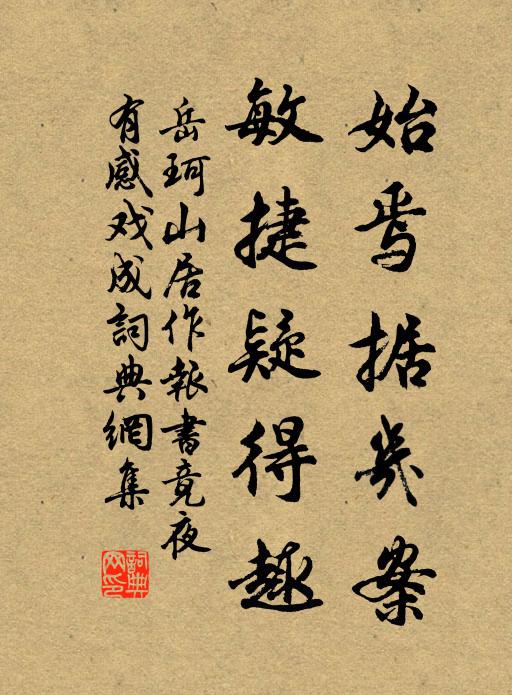 始焉据几案
敏捷疑得趣
岳珂山居作報書竟夜
有感戏成詞典網集
詞典网印